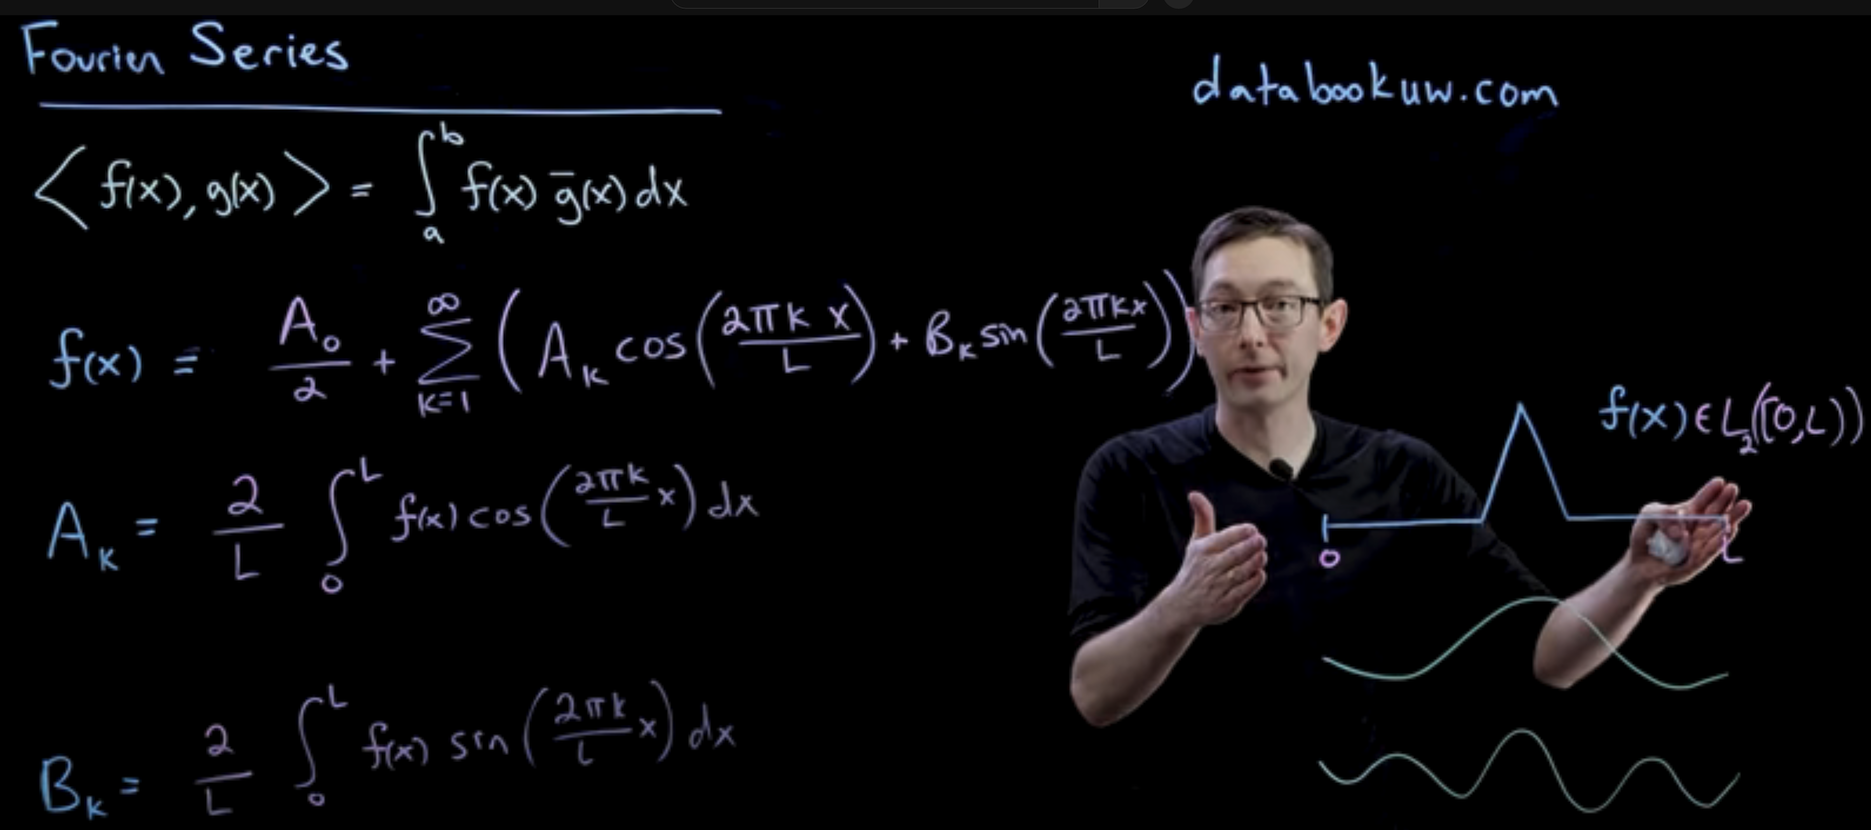 Fourier Series
databookuw.com
⟨f(x), g(x)⟩ = ∫_a^b f(x) ḡ(x) dx
f(x) = A₀/2 + ∑_{k=1}^∞ (A_k cos(2πk x/L) + B_k sin(2πkx/L))
f(x) ∈ L₂([0,L))
A_k = 2/L ∫_0^L f(x) cos(2πk/L x) dx
0 L
B_k = 2/L ∫_0^L f(x) sin(2πk/L x) dx